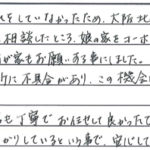 をしていなかったため、大阪北
相談したところ、娘の家をコーポ
が家もお願いする事にしました。
に不具合があり、この機会に
も丁寧でお任せして良かったで
かりしているという事で、安心して